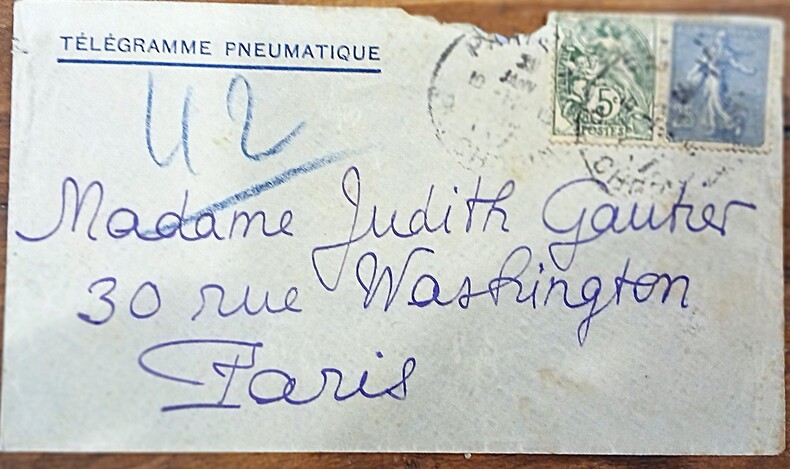 TÉLÉGRAMME PNEUMATIQUE
PARIS
JANV
5c
POSTES
42
Madame Judith Gautier
30 rue Washington
Paris